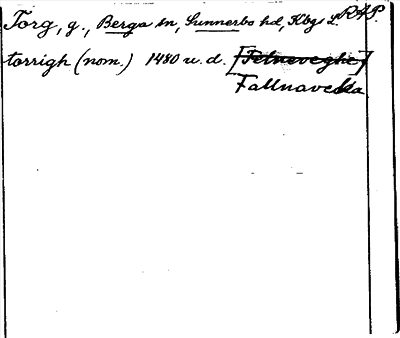 Torg, g., Berga sn, Sunnerbo hd, Kbgs L. RAP.
torrigh (nom.) 1480 u. d. [Felneveghe]
Fallnaveka